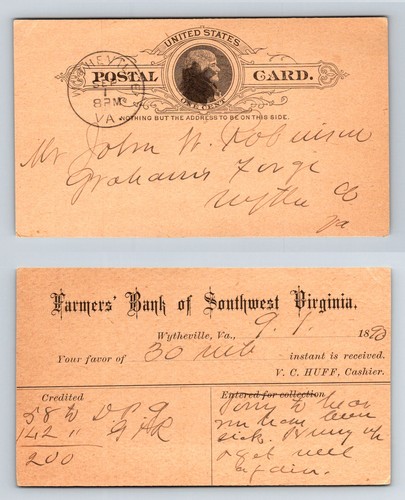 UNITED STATES
POSTAL CARD.
ONE CENT
WYTHEVILLE
SEP
1
8PM
VA
NOTHING BUT THE ADDRESS TO BE ON THIS SIDE.
Mr John W. Robinson
Grahams Forge
Wythe Co
Va
Farmers' Bank of Southwest Virginia.
Wytheville, Va., 9.1. 1890
Your favor of 30 instant is received.
V. C. HUFF, Cashier.
Credited
58
142 "
200
Entered for collection
Sorry to hear
you have been
sick. Hurry up
& get well
again.